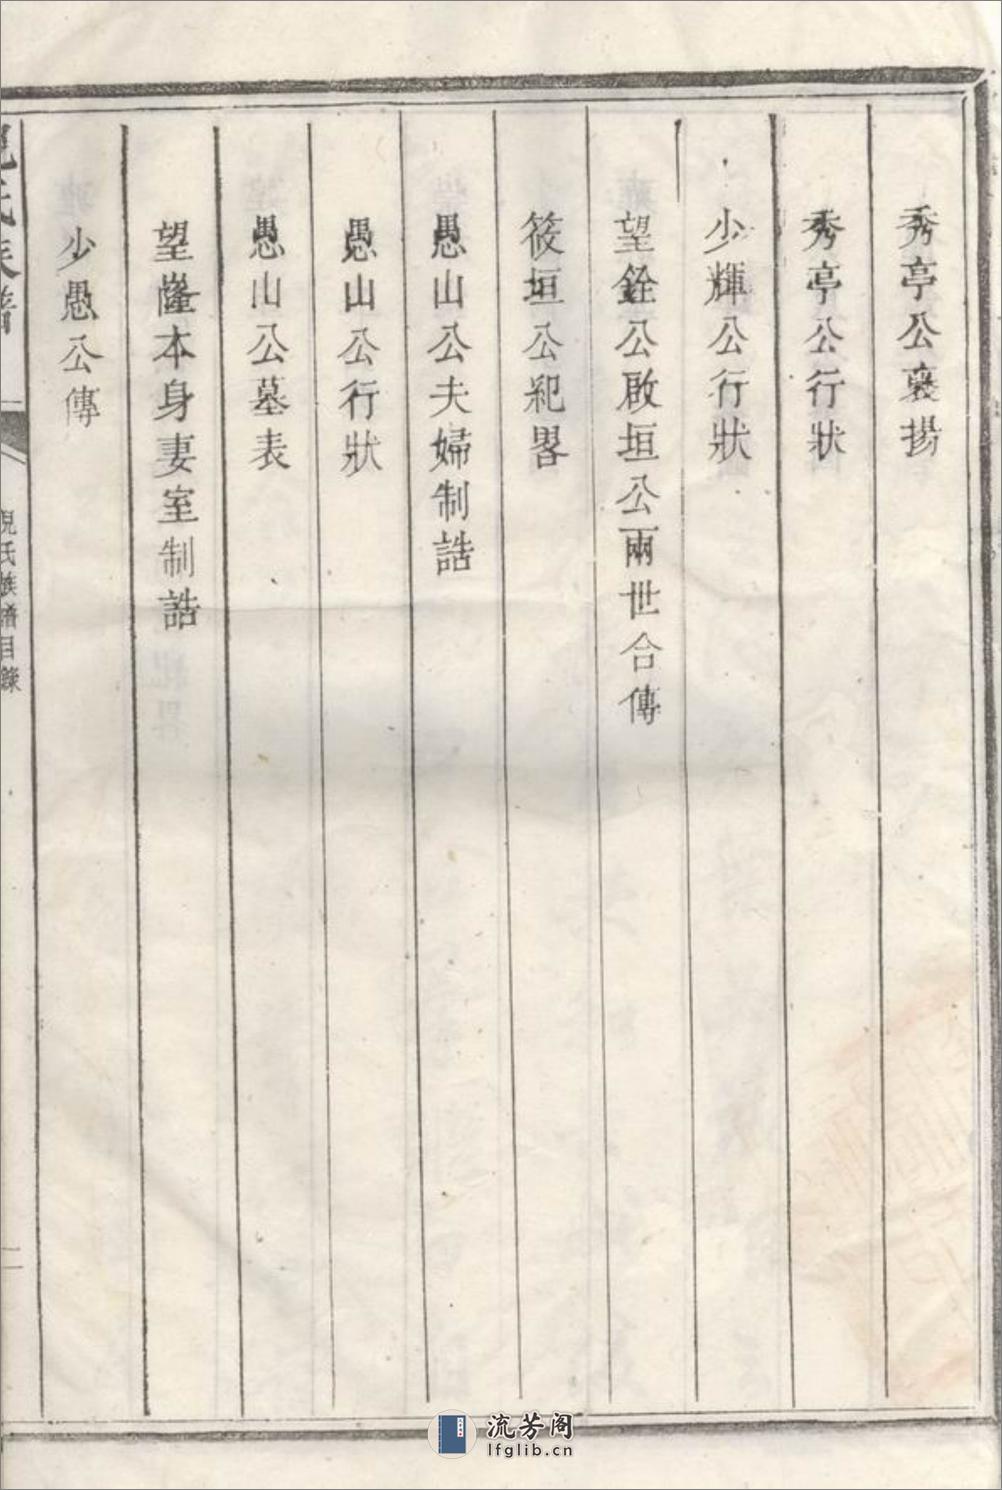 秀亭公襃揚
秀亭公行狀
少輝公行狀
望銓公啟垣公兩世合傳
筱垣公紀畧
愚山公夫婦制誥
愚山公行狀
愚山公墓表
望隆本身妻室制誥
少愚公傳
倪氏族譜
倪氏族譜目錄
二
流芳阁
lfglib.cn